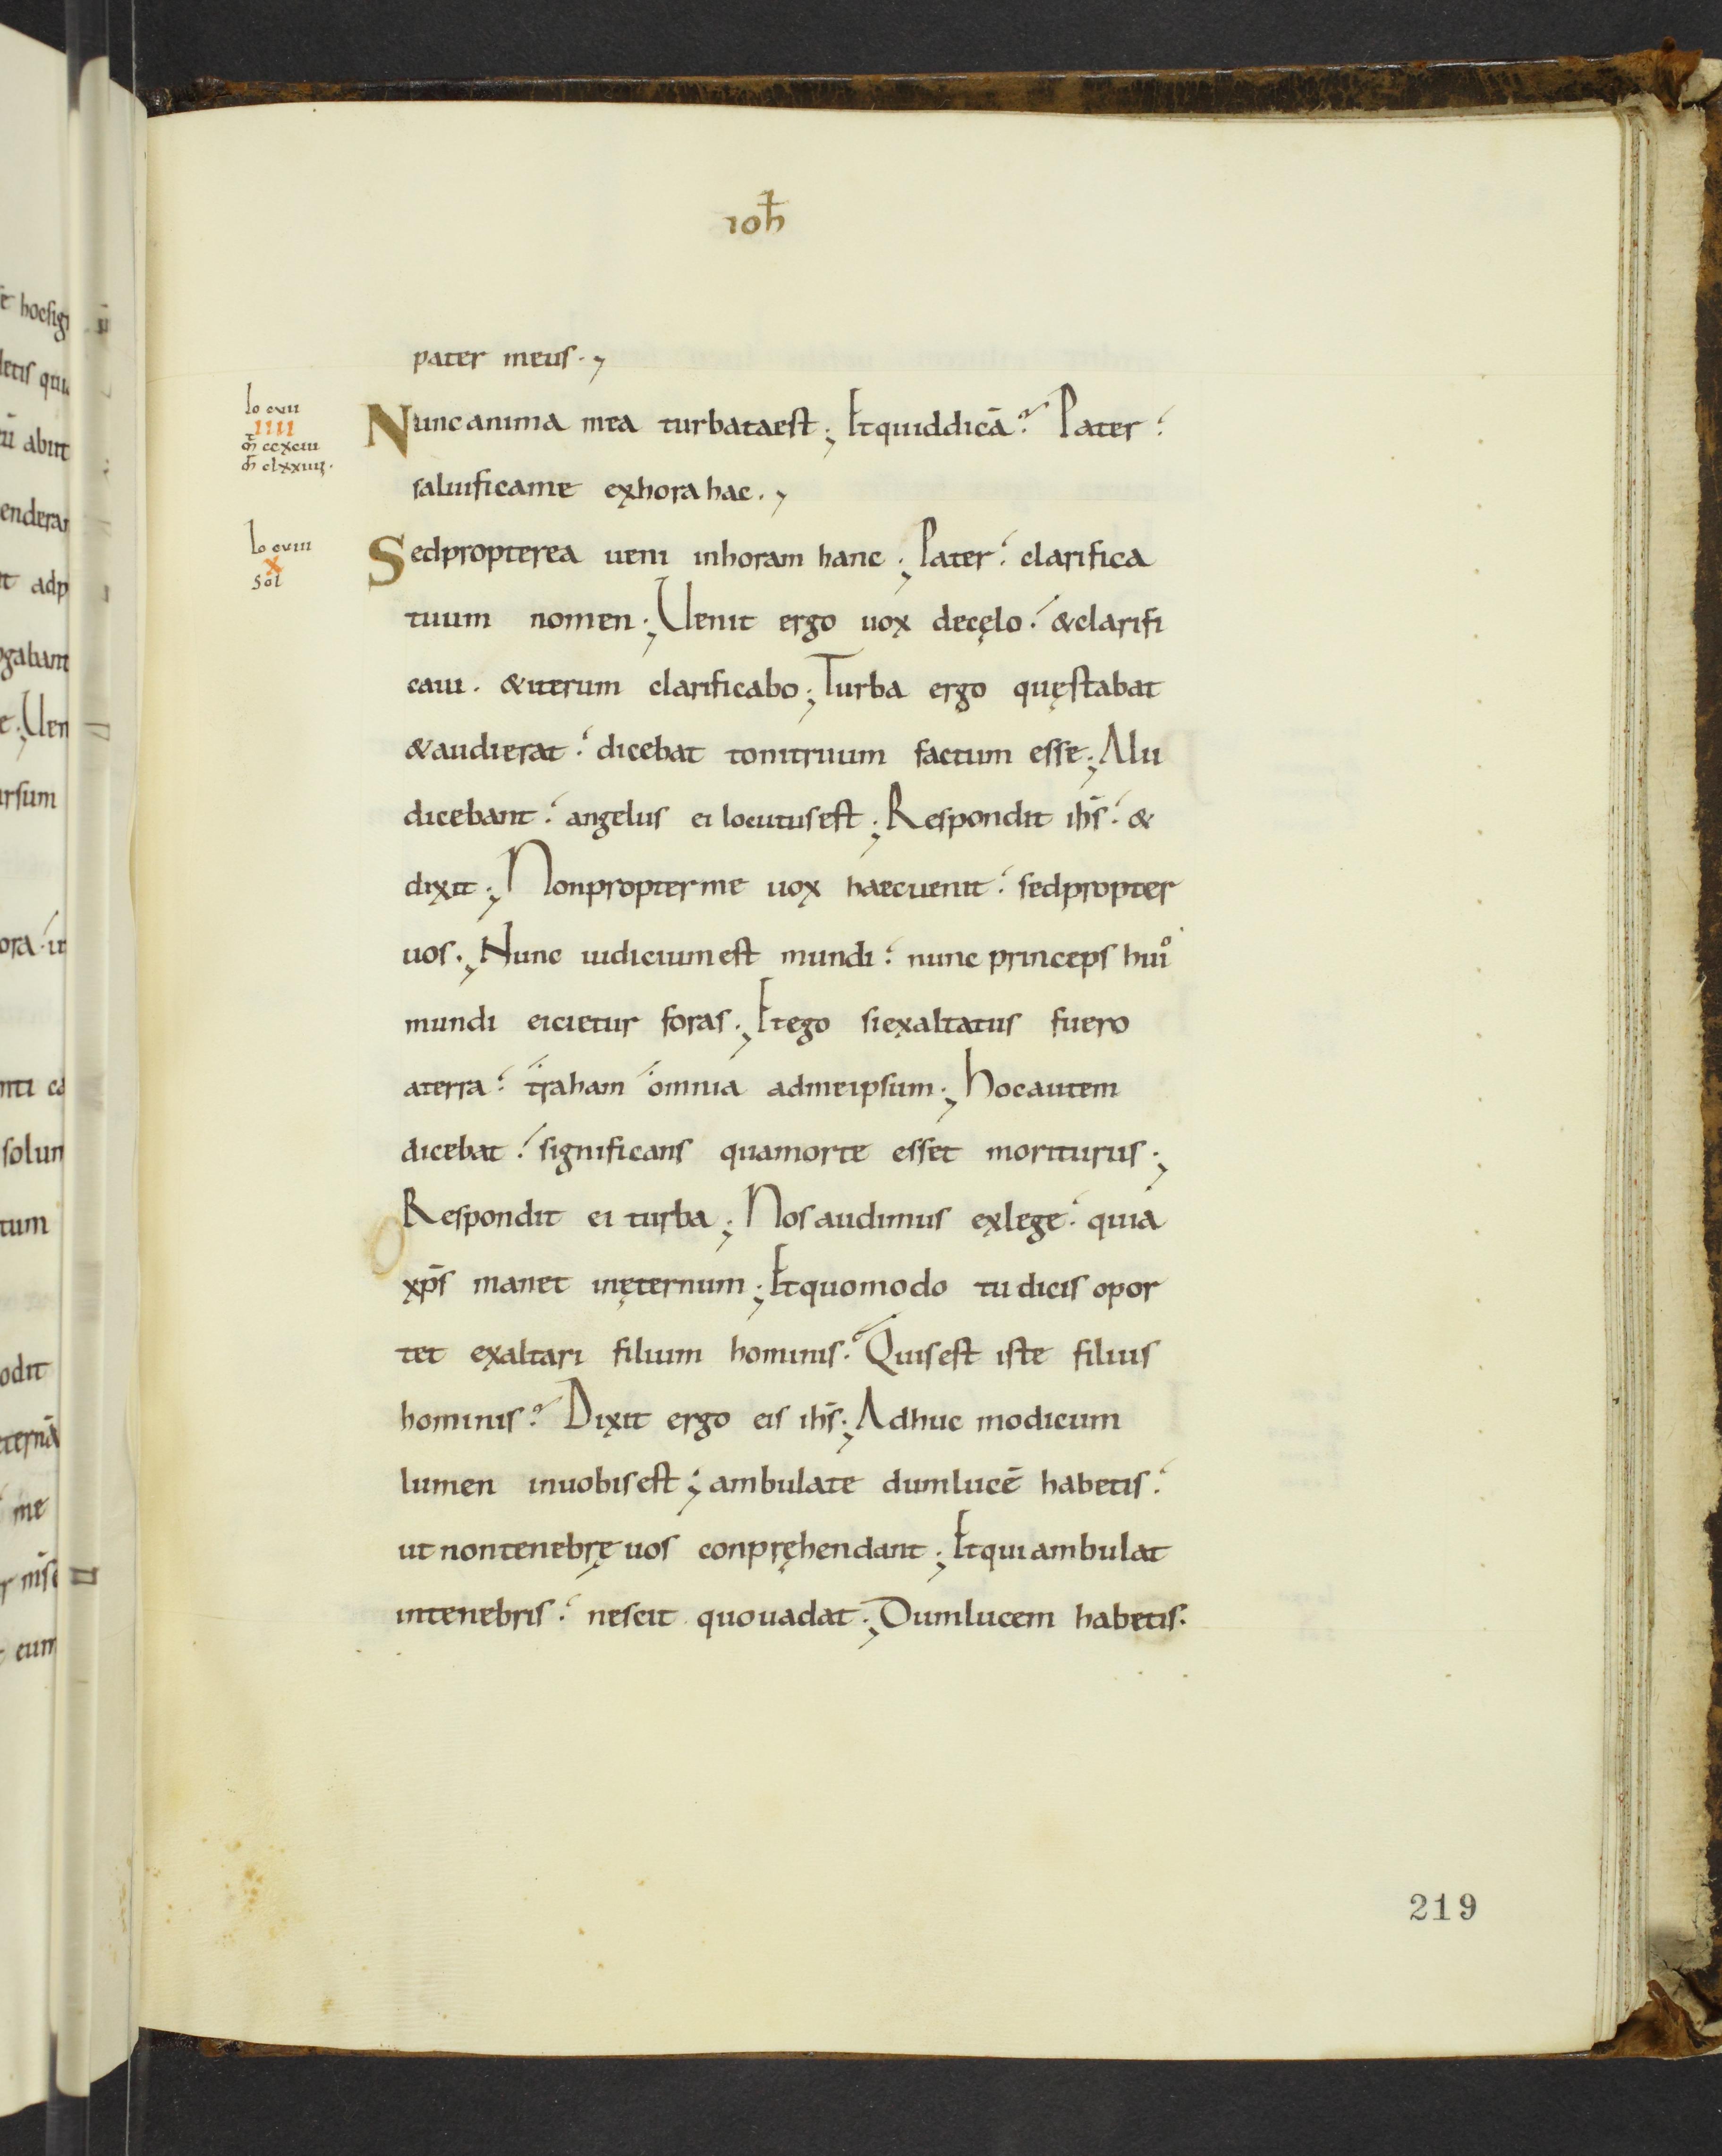 ioħ
pater meus.,
Nunc anima mea turbata est; Et quid dicā? Pater
saluifica me ex hora hac.,
Sed propterea ueni in horam hanc; Pater clarifica
tuum nomen; Uenit ergo uox de cęlo & clarifi
caui. & iterum clarificabo; Turba ergo quę stabat
& audierat dicebat tonitruum factum esse; Alii
dicebant angelus ei locutus est; Respondit ihs̄ &
dixit; Non propter me uox haec uenit sed propter
uos; Nunc iudicium est mundi nunc princeps hui᾿
mundi eicietur foras; Et ego si exaltatus fuero
a terra traham omnia ad me ipsum; Hoc autem
dicebat significans qua morte esset moriturus;
Respondit ei turba; Nos audimus ex lege quia
xp̄s manet in ęternum; Et quomodo tu dicis opor
tet exaltari filium hominis? Quis est iste filius
hominis? Dixit ergo eis ihs̄; Adhuc modicum
lumen in uobis est; ambulate dum lucē habetis
ut non tenebrę uos conpręhendant; Et qui ambulat
in tenebris nescit quo uadat; Dum lucem habetis.
Io cvii
IIII
m̄ ccxciii
m̄ clxxiiii.
Io cviii
X
Sol
219